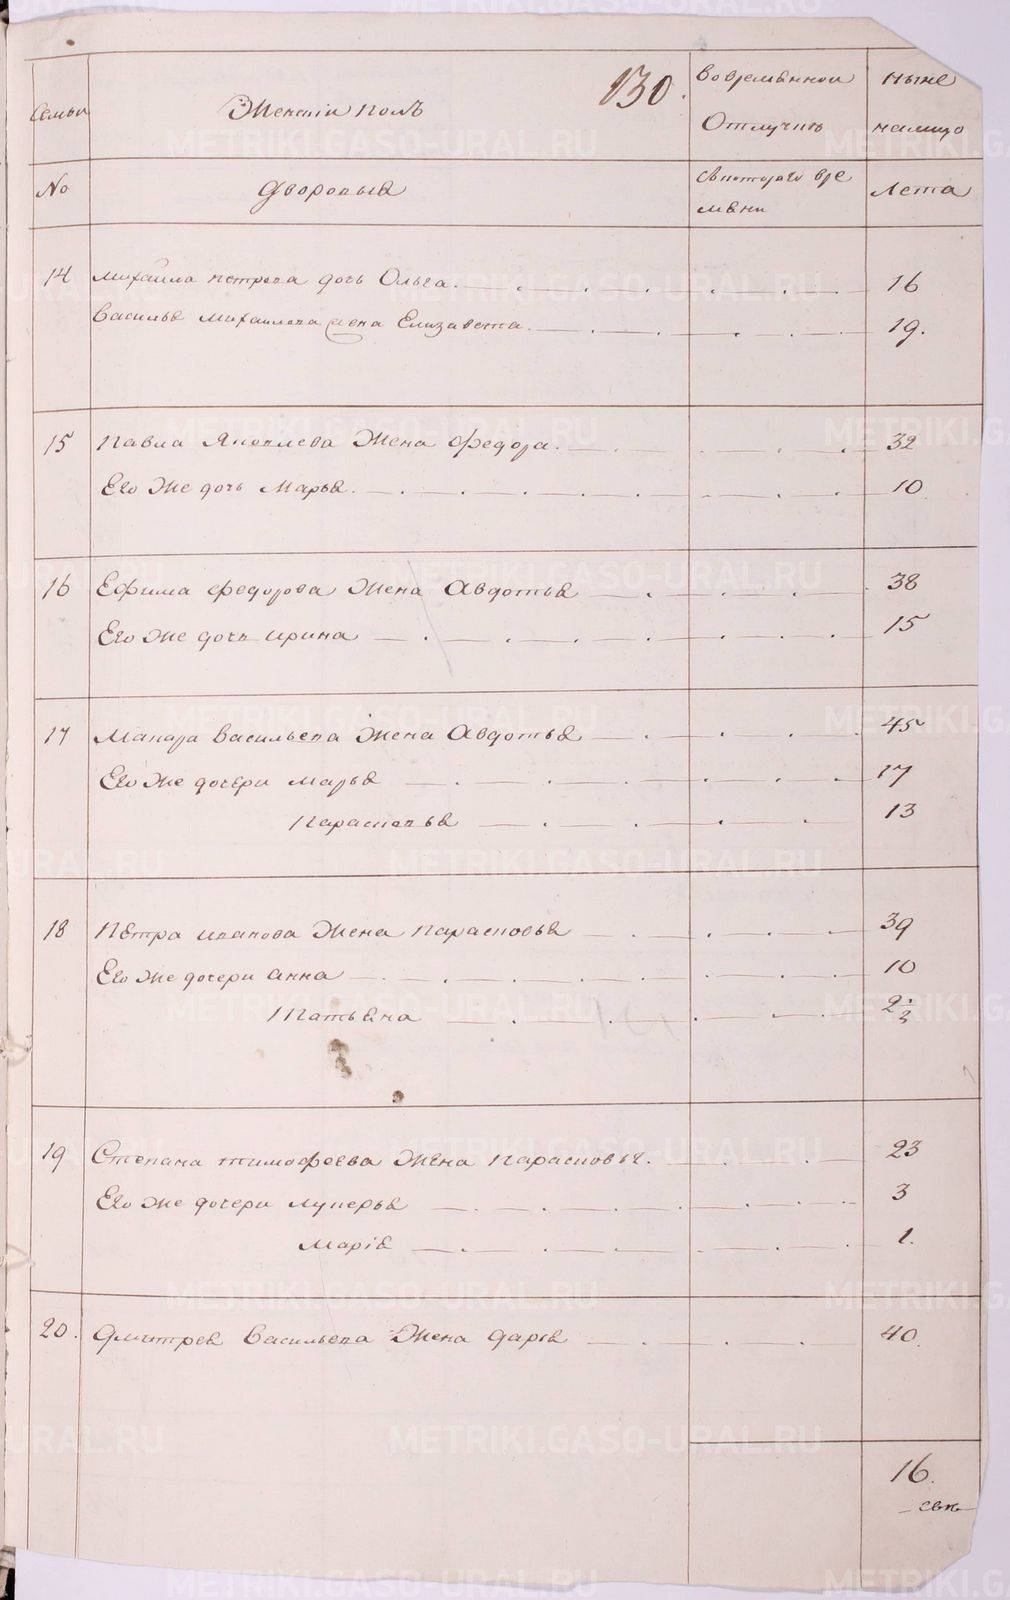 Семьи
Женскiи полъ
130.
Во времѣннои
Отлучкѣ
Ныне
налицо
No
Дворовыѣ
Съ котораго вре
мѣни
Лета
14 Михаила петрова дочь Ольга. 16
Василья Михаилова жена Елизавета. 19.
15 Павла Яковлева Жена федора. 32
Его Же дочь Марьѣ. 10
16 Ефима федорова Жена Авдотьѣ 38
Его же дочь ирина 15
17 Макара Васильева Жена Авдотьѣ 45
Его Же дочери марьѣ 17
парасковьѣ 13
18 Пѣтра иванова Жена парасковьѣ 39
Его Же дочери анна 10
татьѣна 2 1/2
19 Степана тимофеева Жена парасковьѣ. 23
Его Же дочери лукерьѣ 3
марiѣ 1.
20. Дмитрея Васильева Жена дарьѣ 40
16.
METRIKI.GASO-URAL.RU